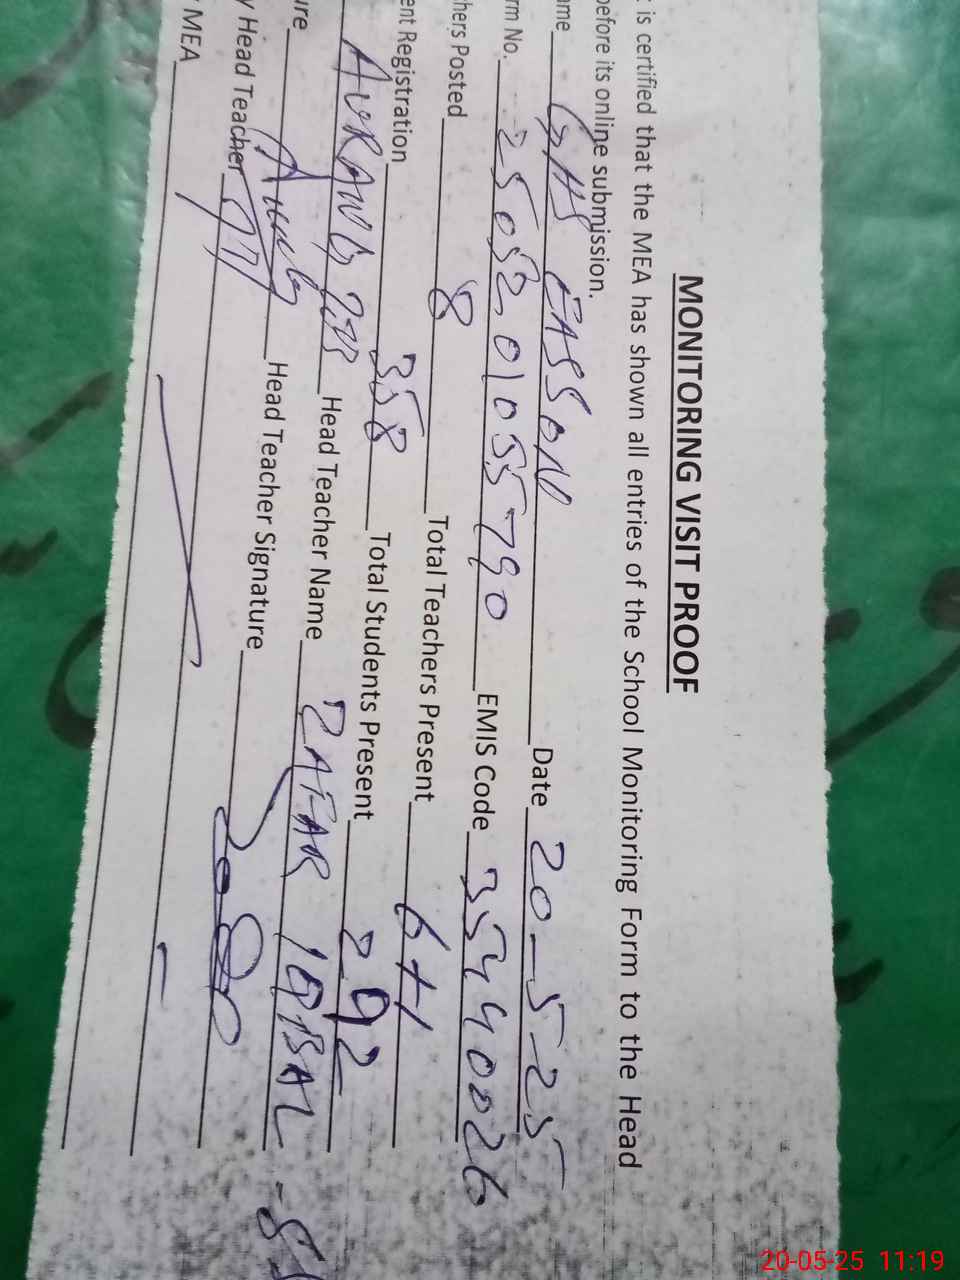 MONITORING VISIT PROOF
is certified that the MEA has shown all entries of the School Monitoring Form to the Head
before its online submission.
ame GHS Date 20-5-25
rm No. 25052 01055790 EMIS Code 35440026
hers Posted 8 Total Teachers Present 6+1
ent Registration 358 Total Students Present 292
AURANG Head Teacher Name ZAFAR IQBAL
ure Head Teacher Signature
y Head Teacher
MEA
20-05-25 11:19